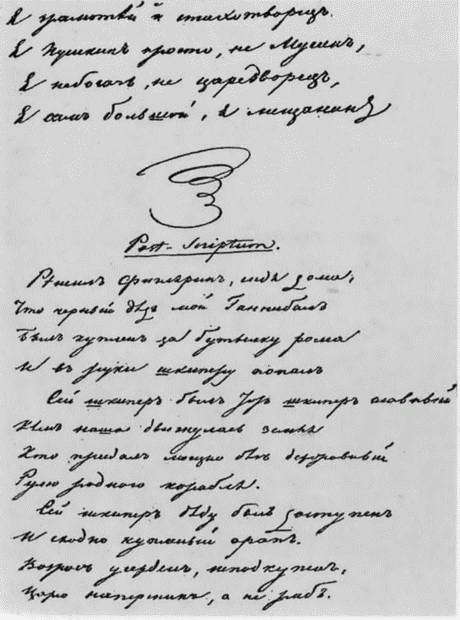 Я грамотѣй и стихотворецъ.
Я Пушкинъ просто, не Мусинъ,
Я небогачь, не царедворецъ,
Я самъ большой, я мещанинъ
Post-Scriptum.
Рѣшилъ Фигляринъ, сидя дома,
Что черный дѣдъ мой Ганнибалъ
Былъ купленъ за бутылку рома
И въ руки шкиперу попалъ
Сей шкиперъ былъ тотъ шкиперъ славный
Кѣмъ наша двигнулась земля
Кто придалъ мощно бѣгъ державный
Рулю родного корабля.
Сей шкиперъ дѣду былъ доступенъ
И сходно купленый арапъ.
Возросъ усерденъ, неподкупенъ,
Царю наперсникъ, а не рабъ.